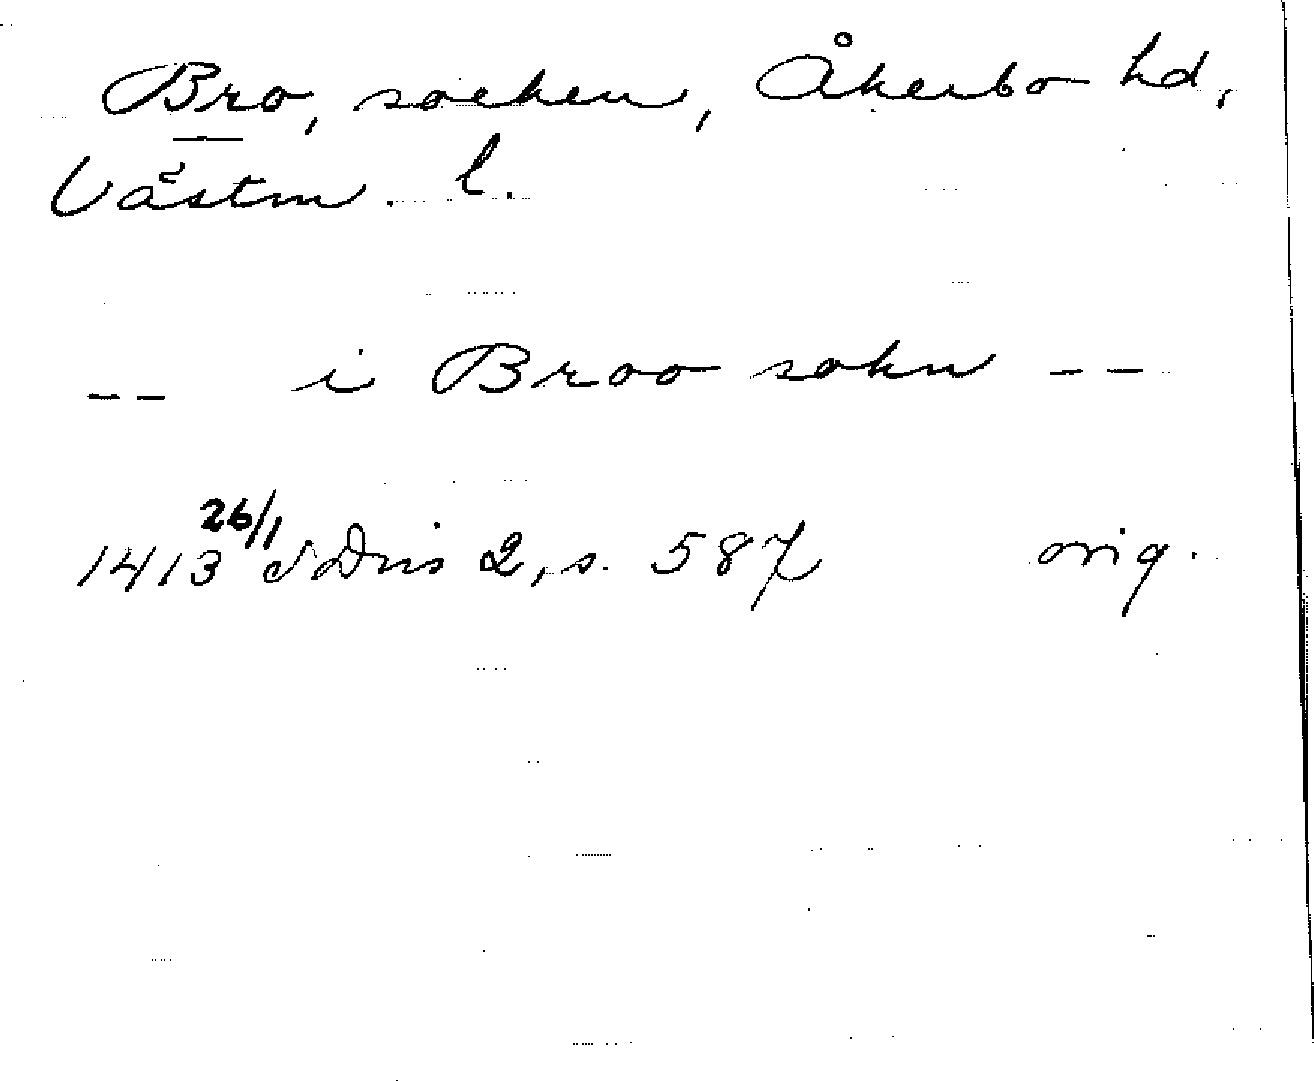 Bro, socken, Åkerbo hd,
Västm. l.
-- i Broo sokn --
1413 26/1 SDns 2, s. 587 orig.